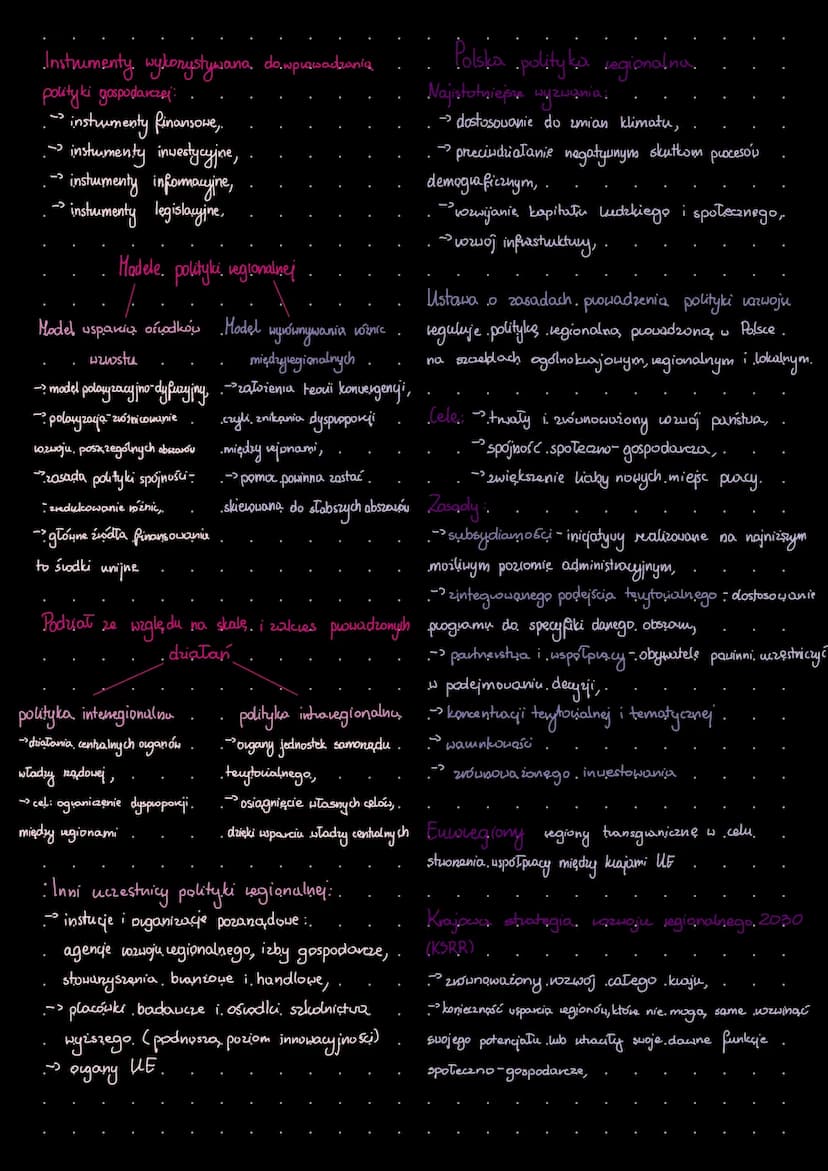 Instrumenty wykorzystywana do wprowadzania
polityki gospodarczej:
-> instrumenty finansowe,
-> instrumenty inwestycyjne,
-> instrumenty informacyjne,
-> instrumenty legislacyjne,
Modele polityki regionalnej
Model wsparcia ośrodków
wzrostu
-> model polaryzacyjno-dyfuzyjny,
-> polaryzacja-zróżnicowanie
rozwoju poszczególnych obszarów
-> zasada polityki spójności-
- zredukowanie różnic,
-> główne źródła finansowania
to środki unijne
Model wyrównywania różnic
międzyregionalnych
-> założenia teorii konwergencji,
czyli znikania dysproporcji
między rejonami,
-> pomoc powinna zostać
skierowana do słabszych obszarów
Podział ze względu na skalę i zakres prowadzonych
działań
polityka interregionalna
-> działania centralnych organów
władzy rządowej,
-> cel: ograniczenie dysproporcji
między regionami
polityka intraregionalna
-> organy jednostek samorządu
terytorialnego,
-> osiągnięcie własnych celów,
dzięki wsparciu władzy centralnych
Inni uczestnicy polityki regionalnej:
-> instucje i organizacje pozarządowe:
agencje rozwoju regionalnego, izby gospodarcze,
stowarzyszenia branżowe i handlowe,
-> placówki badawcze i ośrodki szkolnictwa
wyższego (podnoszą poziom innowacyjności)
-> organy UE
Polska polityka regionalna
Najistotniejsze wyzwania:
-> dostosowanie do zmian klimatu,
-> przeciwdziałanie negatywnym skutkom procesów
demograficznym,
-> rozwijanie kapitału ludzkiego i społecznego,
-> rozwój infrastruktury,
Ustawa o zasadach prowadzenia polityki rozwoju
reguluje politykę regionalną prowadzoną w Polsce
na szczeblach ogólnokrajowym, regionalnym i lokalnym.
Cele: -> trwały i zrównoważony rozwój państwa,
-> spójność społeczno-gospodarcza,
-> zwiększenie liczby nowych miejsc pracy.
Zasady:
-> subsydiarności - inicjatywy realizowane na najniższym
możliwym poziomie administracyjnym,
-> zintegrowanego podejścia terytorialnego - dostosowanie
programu do specyfiki danego obszaru,
-> partnerstwa i współpracy - obywatele powinni uczestniczyć
w podejmowaniu decyzji,
-> koncentracji terytorialnej i tematycznej
-> warunkowości
-> zrównoważonego inwestowania
Euroregiony regiony transgraniczne w celu
stworzenia współpracy między krajami UE
Krajowa strategia rozwoju regionalnego 2030
(KSRR)
-> zrównoważony rozwój całego kraju,
-> konieczność wsparcia regionów, które nie mogą same rozwinąć
swojego potencjału lub utraciły swoje dawne funkcje
społeczno-gospodarcze,